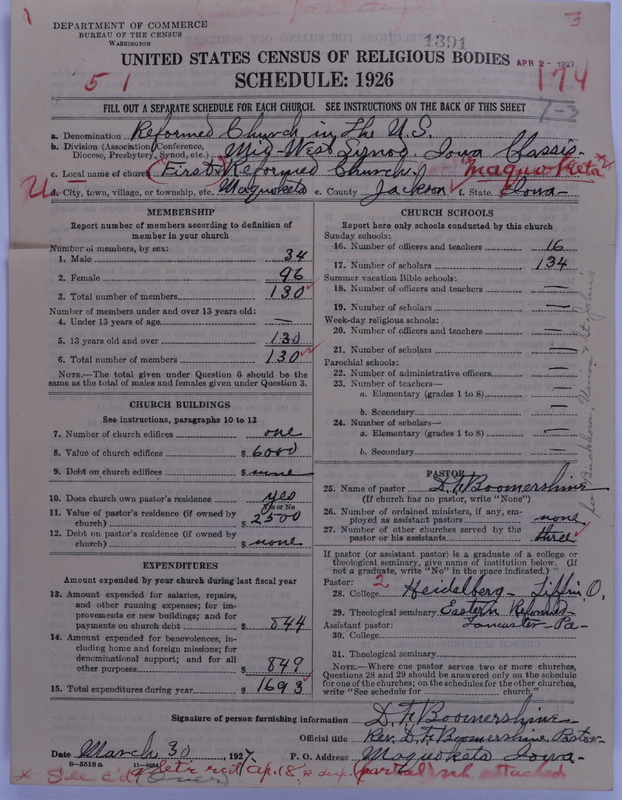 DEPARTMENT OF COMMERCE
BUREAU OF THE CENSUS
WASHINGTON
1391
UNITED STATES CENSUS OF RELIGIOUS BODIES
APR 2 - 1927
SCHEDULE: 1926
51
174
FILL OUT A SEPARATE SCHEDULE FOR EACH CHURCH. SEE INSTRUCTIONS ON THE BACK OF THIS SHEET
7-3
a. Denomination Reformed Church in the U.S.
b. Division (Association, Conference, Diocese, Presbytery, Synod, etc.) Mid-West Synod. Iowa Classis-
c. Local name of church (First) Reformed Church. Maquoketa
d. City, town, village, or township, etc. Maquoketa e. County Jackson f. State Iowa-
MEMBERSHIP
Report number of members according to definition of member in your church
Number of members, by sex:
1. Male 34
2. Female 96
3. Total number of members 130
Number of members under and over 13 years old:
4. Under 13 years of age —
5. 13 years old and over 130
6. Total number of members 130
NOTE.—The total given under Question 6 should be the same as the total of males and females given under Question 3.
CHURCH BUILDINGS
See instructions, paragraphs 10 to 12
7. Number of church edifices one
8. Value of church edifices $ 6000
9. Debt on church edifices $ none
10. Does church own pastor's residence yes
Yes or No
11. Value of pastor's residence (if owned by church) $ 2500
12. Debt on pastor's residence (if owned by church) $ none
EXPENDITURES
Amount expended by your church during last fiscal year
13. Amount expended for salaries, repairs, and other running expenses; for improvements or new buildings; and for payments on church debt $ 844
14. Amount expended for benevolences, including home and foreign missions; for denominational support; and for all other purposes $ 849
15. Total expenditures during year $ 1693
CHURCH SCHOOLS
Report here only schools conducted by this church
Sunday schools:
16. Number of officers and teachers 16
17. Number of scholars 134
Summer vacation Bible schools:
18. Number of officers and teachers —
19. Number of scholars —
Week-day religious schools:
20. Number of officers and teachers —
21. Number of scholars —
Parochial schools:
22. Number of administrative officers —
23. Number of teachers—
a. Elementary (grades 1 to 8) —
b. Secondary —
24. Number of scholars—
a. Elementary (grades 1 to 8) —
b. Secondary —
PASTOR
25. Name of pastor D. F. Boomershine
(If church has no pastor, write "None")
26. Number of ordained ministers, if any, employed as assistant pastors none
27. Number of other churches served by the pastor or his assistants three
If pastor (or assistant pastor) is a graduate of a college or theological seminary, give name of institution below. (If not a graduate, write "No" in the space indicated.)
Pastor: 2
28. College Heidelberg- Tiffin O.
29. Theological seminary Eastern Reformed-
Assistant pastor: Lancaster- Pa-
30. College
31. Theological seminary
NOTE.—Where one pastor serves two or more churches, Questions 28 and 29 should be answered only on the schedule for one of the churches; on the schedules for the other churches, write "See schedule for church."
Signature of person furnishing information D. F. Boomershine-
Official title Rev. D. F. Boomershine. Pastor-
Date March 30, 1927. P. O. Address Maquoketa Iowa-
8-5518 a
(over)
attached